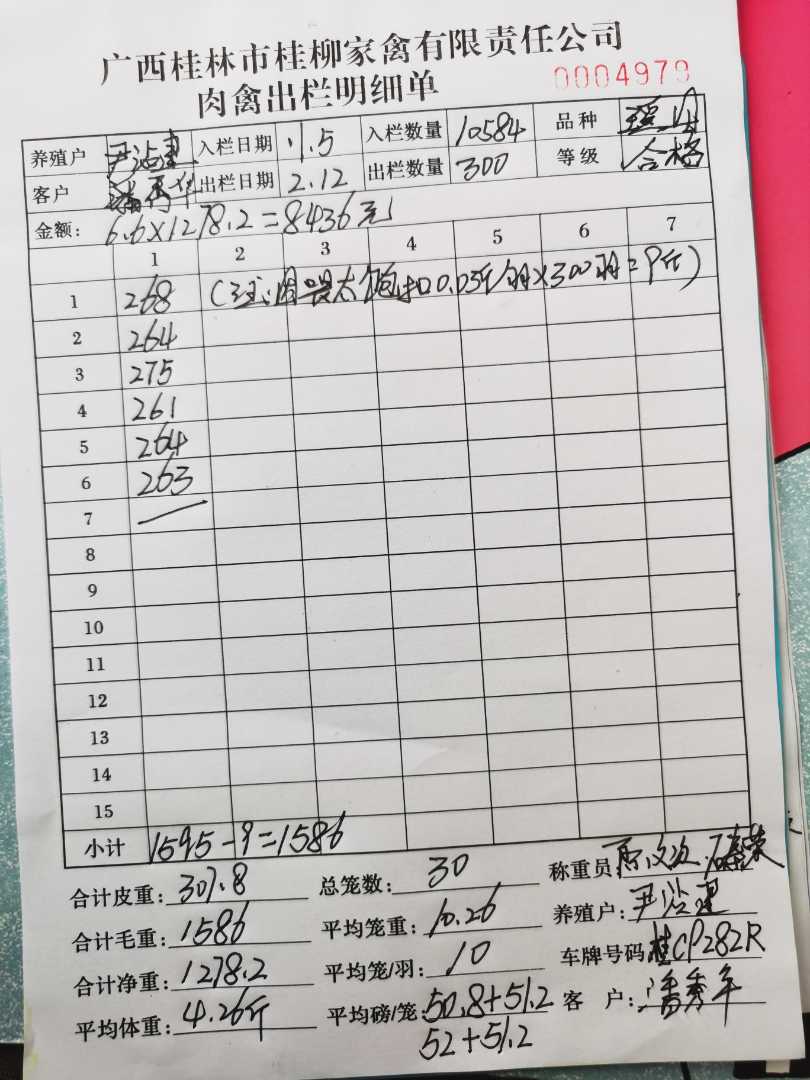 广西桂林市桂柳家禽有限责任公司
肉禽出栏明细单 0004979
养殖户 入栏日期 1.5 入栏数量 10584 品种
客户 出栏日期 2.12 出栏数量 300 等级 合格
金额: 6.6×1278.2=8436元
1 2 3 4 5 6 7
1 268 (注:因喂太饱扣0.03斤/羽×300羽=9斤)
2 264
3 275
4 261
5 264
6 263
7
8
9
10
11
12
13
14
15
小计 1595-9=1586
合计皮重: 307.8 总笼数: 30 称重员:
合计毛重: 1586 平均笼重: 10.26 养殖户:
合计净重: 1278.2 平均笼/羽: 10 车牌号码 桂CP282R
平均体重: 4.26斤 平均磅/笼: 50.8+51.2 客 户:
52+51.2